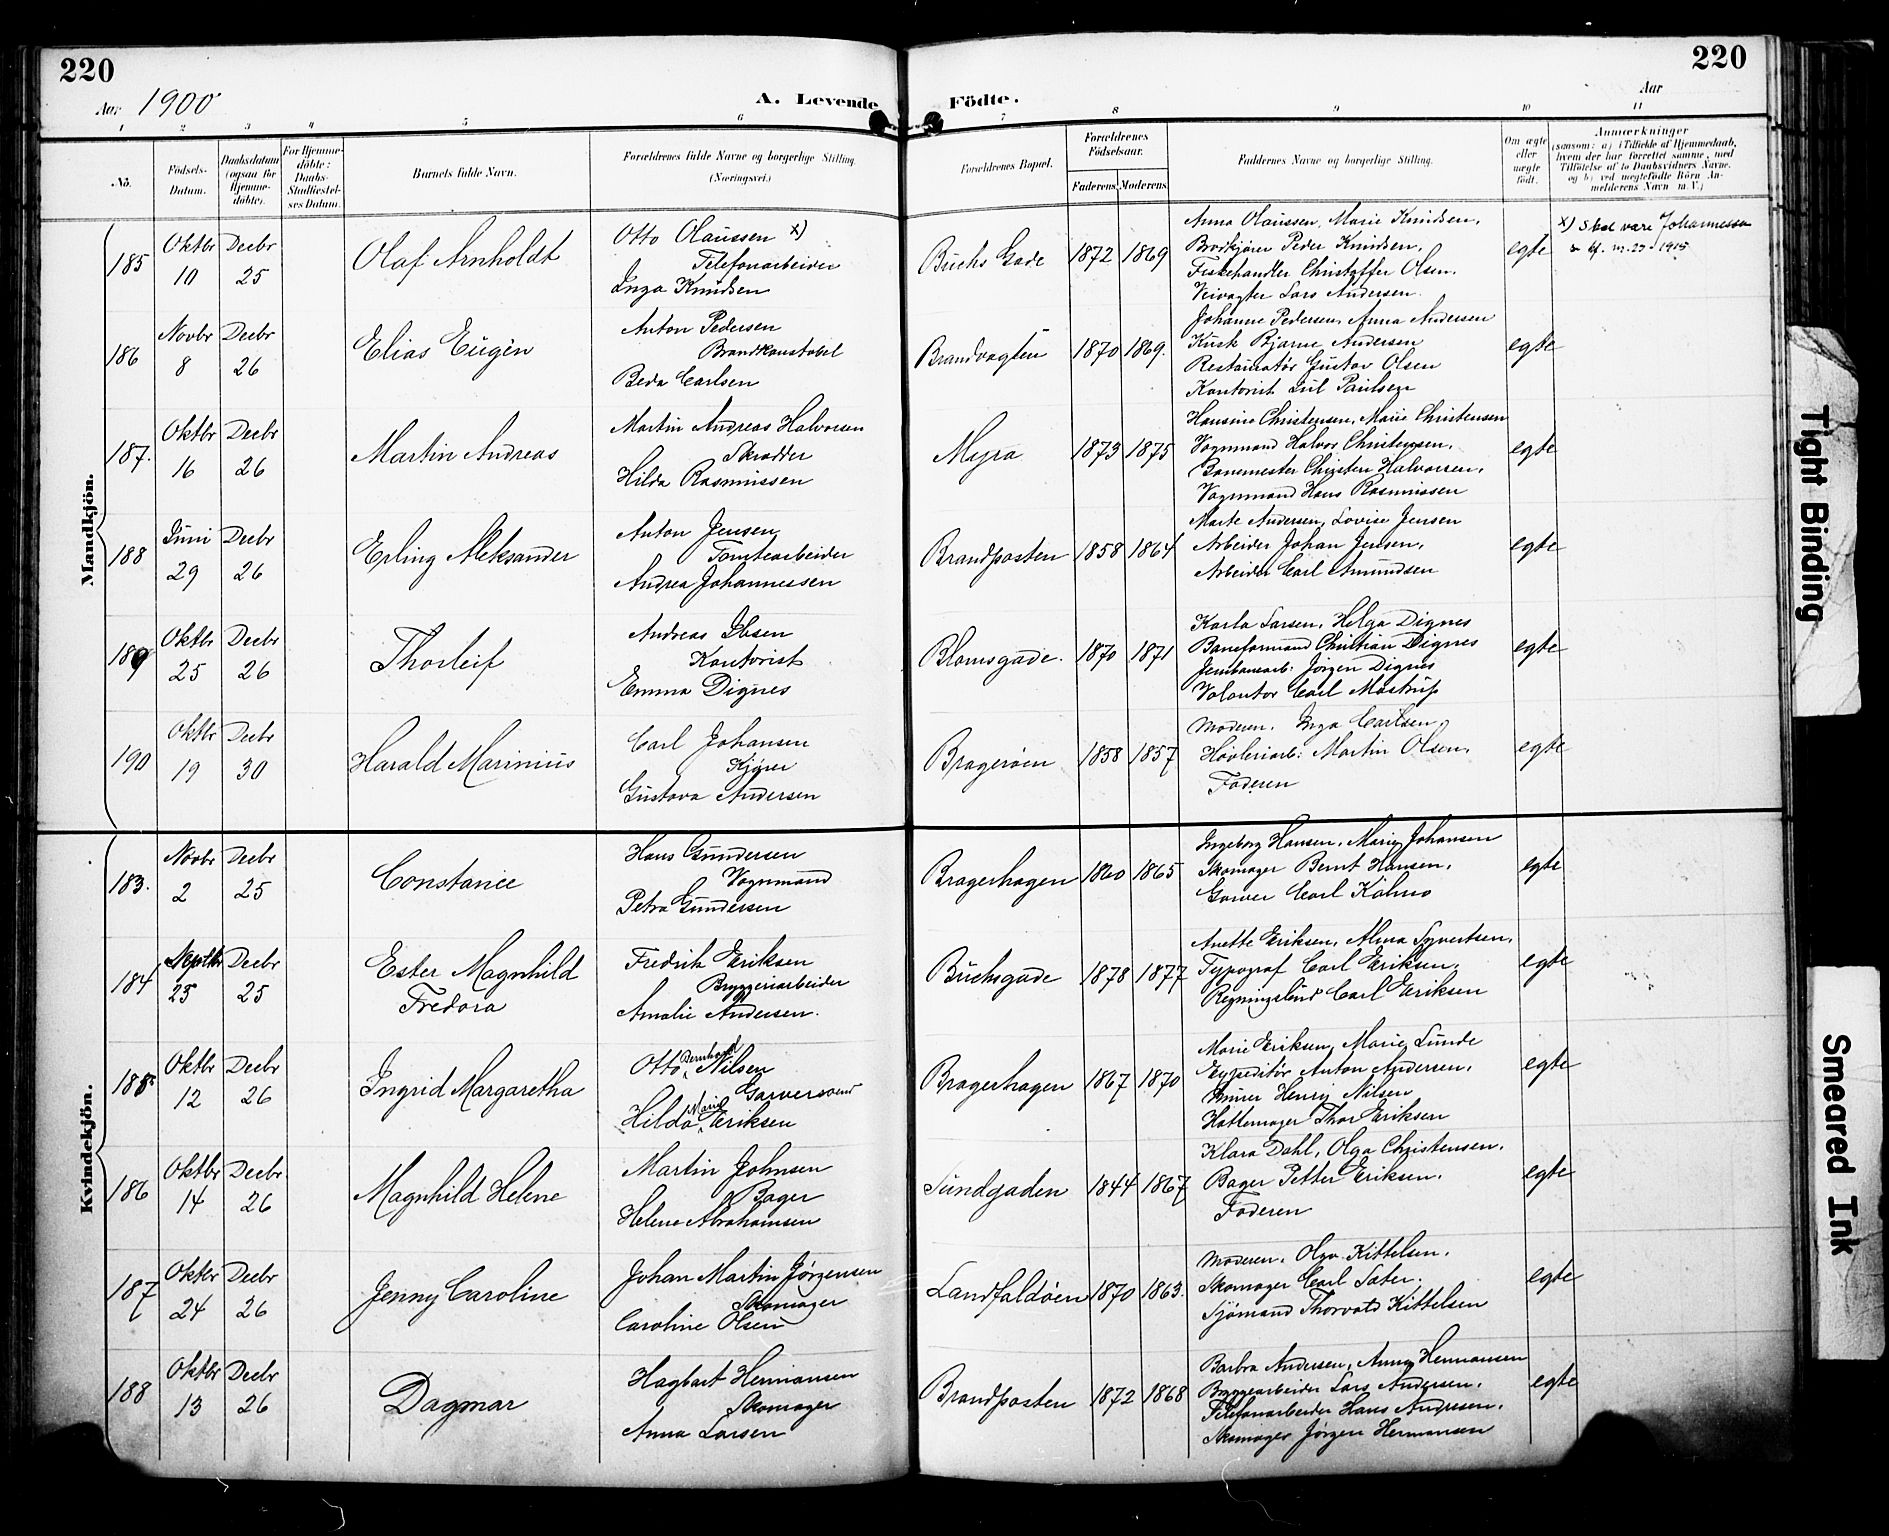 220
220
Aar 1900
A. Levende Födte.
Aar
1 2 3 4 5 6 7 8 9 10 11
No.
Födsels-Datum.
Daabsdatum (ogsaa for Hjemme-döbte).
For Hjemme-döbte: Daabs-Stadfæstel-ses Datum.
Barnets fulde Navn.
Forældrenes fulde Navne og borgerlige Stilling. (Næringsvei.)
Forældrenes Bopæl.
Forældrenes Födselsaar.
Faderens. Moderens.
Faddernes Navne og borgerlige Stilling.
Om ægte eller uægte födt.
Anmærkninger
(saasom: a) i Tilfælde af Hjemmedaab, hvem der har forrettet samme, med Tilföielse af to Daabsvidners Navne, og b) ved uægtefödte Börn An-melderens Navn m. V.)
Mandkjön.
185 Oktbr 10 Decbr 25
Olaf Arnholdt
Otto Olaussen x)
Telefonarbeider
Inga Knudsen
Buchs Gade 1872 1869
Anna Olaussen, Marie Knudsen,
Brødkjører Peder Knudsen,
Fiskehandler Christoffer Olsen,
Veivogter Lars Andersen.
egte
x) Skal være Johannessen
186 Novbr 8 Decbr 26
Elias Eugen
Anton Pedersen
Brandkonstabel
Beda Carlsen
Brandvagten 1870 1869.
Johanne Pedersen, Anna Andersen
Kusk Bjarne Andersen
Restauratør Gustav Olsen
Kontorist Paulsen
egte
187. Oktbr 16 Decbr 26
Martin Andreas
Martin Andreas Halvorsen
Skrædder
Hilda Rasmussen
Myra 1873 1875
Hansine Christensen, Marie Christensen
Vognmand Halvor Christensen,
Banemester Christen Halvorsen,
Vognmand Hans Rasmussen
egte
188 Juni 29 Decbr 26
Erling Aleksander
Anton Jensen
Tomtearbeider
Andrea Johannessen
Brandposten 1858 1864
Marte Andersen, Lovise Jensen
Arbeider Johan Jensen,
Arbeider Carl Amundsen
egte
189 Oktbr 25 Decbr 26
Thorleif
Andreas Ibsen
Kontorist
Emma Dignes
Blomsgade. 1870 1871
Karla Larsen, Helga Dignes
Baneformand Christian Dignes
Jernbanearb: Jørgen Dignes
Volontør Carl Mostrup
egte
190 Oktbr 19 Decbr 30
Harald Marinius
Carl Johansen
Kjører
Gustava Andersen
Bragerøen 1858 1857
Moderen, Inga Carlsen,
Høvleriarb: Martin Olsen,
Faderen
egte
Kvindekjön.
183. Novbr 2 Decbr 25
Constance
Hans Gundersen
Vognmand
Petra Gundersen
Bragerhagen 1860 1865
Ingeborg Hansen, Marie Johansen
Skomager Bernt Hansen,
Garver Carl Kølmo
egte
184 Septbr 25 Decbr 25
Ester Magnhild
Fredora
Fredrik Eriksen
Bryggeriarbeider
Amalie Andersen.
Buchsgade 1878 1877
Anette Eriksen, Alma Syvertsen,
Typograf Carl Eriksen,
Regningsbud Carl Eriksen
egte
185 Oktbr 12 Decbr 26
Ingrid Margaretha
Otto Bernhard Nilsen
Garversvend
Hilda Marie Eriksen
Bragerhagen 1867 1870
Marie Eriksen, Marie Lunde
Expeditør Anton Andersen,
Murer Henry Nilsen
Hattemager Thor Eriksen
egte
186 Oktbr 14 Decbr 26
Magnhild Helene
Martin Johnsen
Bager
Helene Abrahamsen
Sundgaden 1844 1867
Klara Dahl, Olga Christensen,
Bager Petter Eriksen,
Faderen
egte
187 Oktbr 24 Decbr 26
Jenny Caroline
Johan Martin Jørgensen
Skomager
Caroline Olsen
Landfaldøen 1870 1863.
Moderen, Olga Kittelsen,
Skomager Carl Sæter,
Sjømand Thorvald Kittelsen
egte
188 Oktbr 13 Decbr 26
Dagmar
Hagbart Hermansen
Skomager
Anna Larsen
Brandposten 1872 1868
Barbra Andersen, Anna Hermansen
Bryggearbeider Lars Andersen,
Telefonarbeider Hans Andresen,
Skomager Jørgen Hermansen
egte
Tight Binding
Smeared Ink